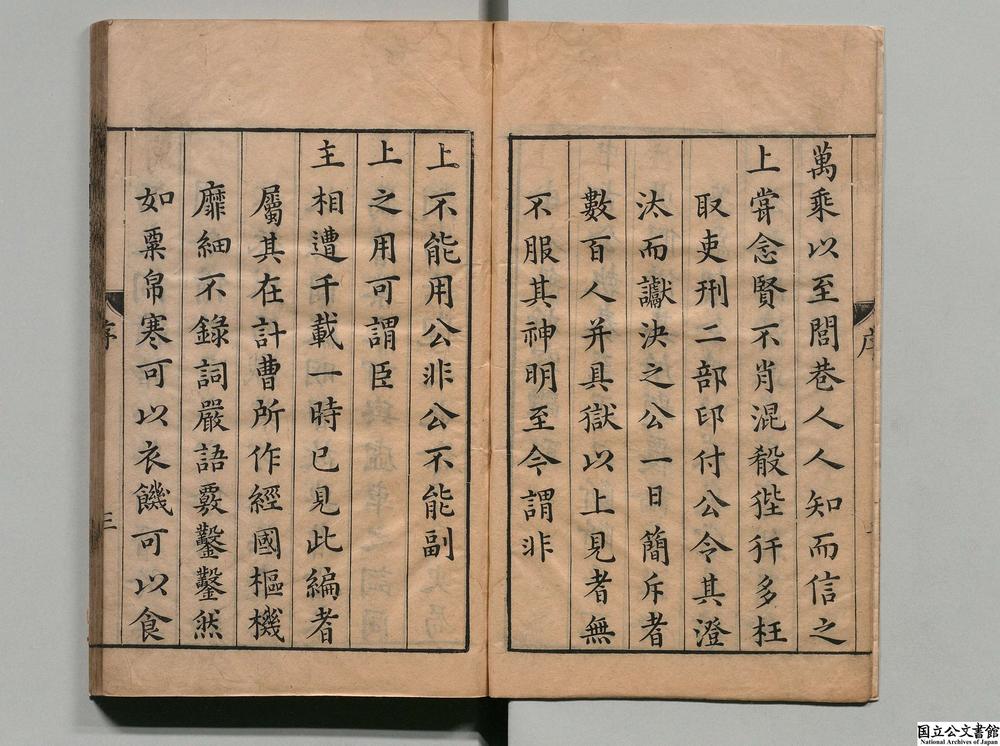 萬乘以至閭巷人人知而信之
上嘗念賢不肖混殽狴犴多枉
取吏刑二部印付公令其澄
汰而讞決之公一日簡斥者
數百人并具獄以上見者無
不服其神明至今謂非
上不能用公非公不能副
上之用可謂臣
主相遭千載一時已見此編者
屬其在計曹所作經國樞機
靡細不錄詞嚴語覈鑿鑿然
如粟帛寒可以衣饑可以食
序
三
国立公文書館
National Archives of Japan